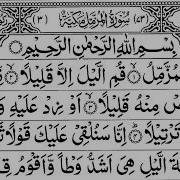 (٧٣) سُوْرَةُ الْمُزَّمِّلِ مَكِّيَّةٌ (٣)
بِسْمِ اللّٰهِ الرَّحْمٰنِ الرَّحِيْمِ
الْمُزَّمِّلُ ۙ قُمِ الَّيْلَ اِلَّا قَلِيْلًا ۙ
مِنْهُ قَلِيْلًا ۙ اَوْ زِدْ عَلَيْهِ وَ
تَرْتِيْلًا ۭ اِنَّا سَنُلْقِيْ عَلَيْكَ قَوْلًا
الَّيْلِ هِيَ اَشَدُّ وَطْاً وَّاَقْوَمُ